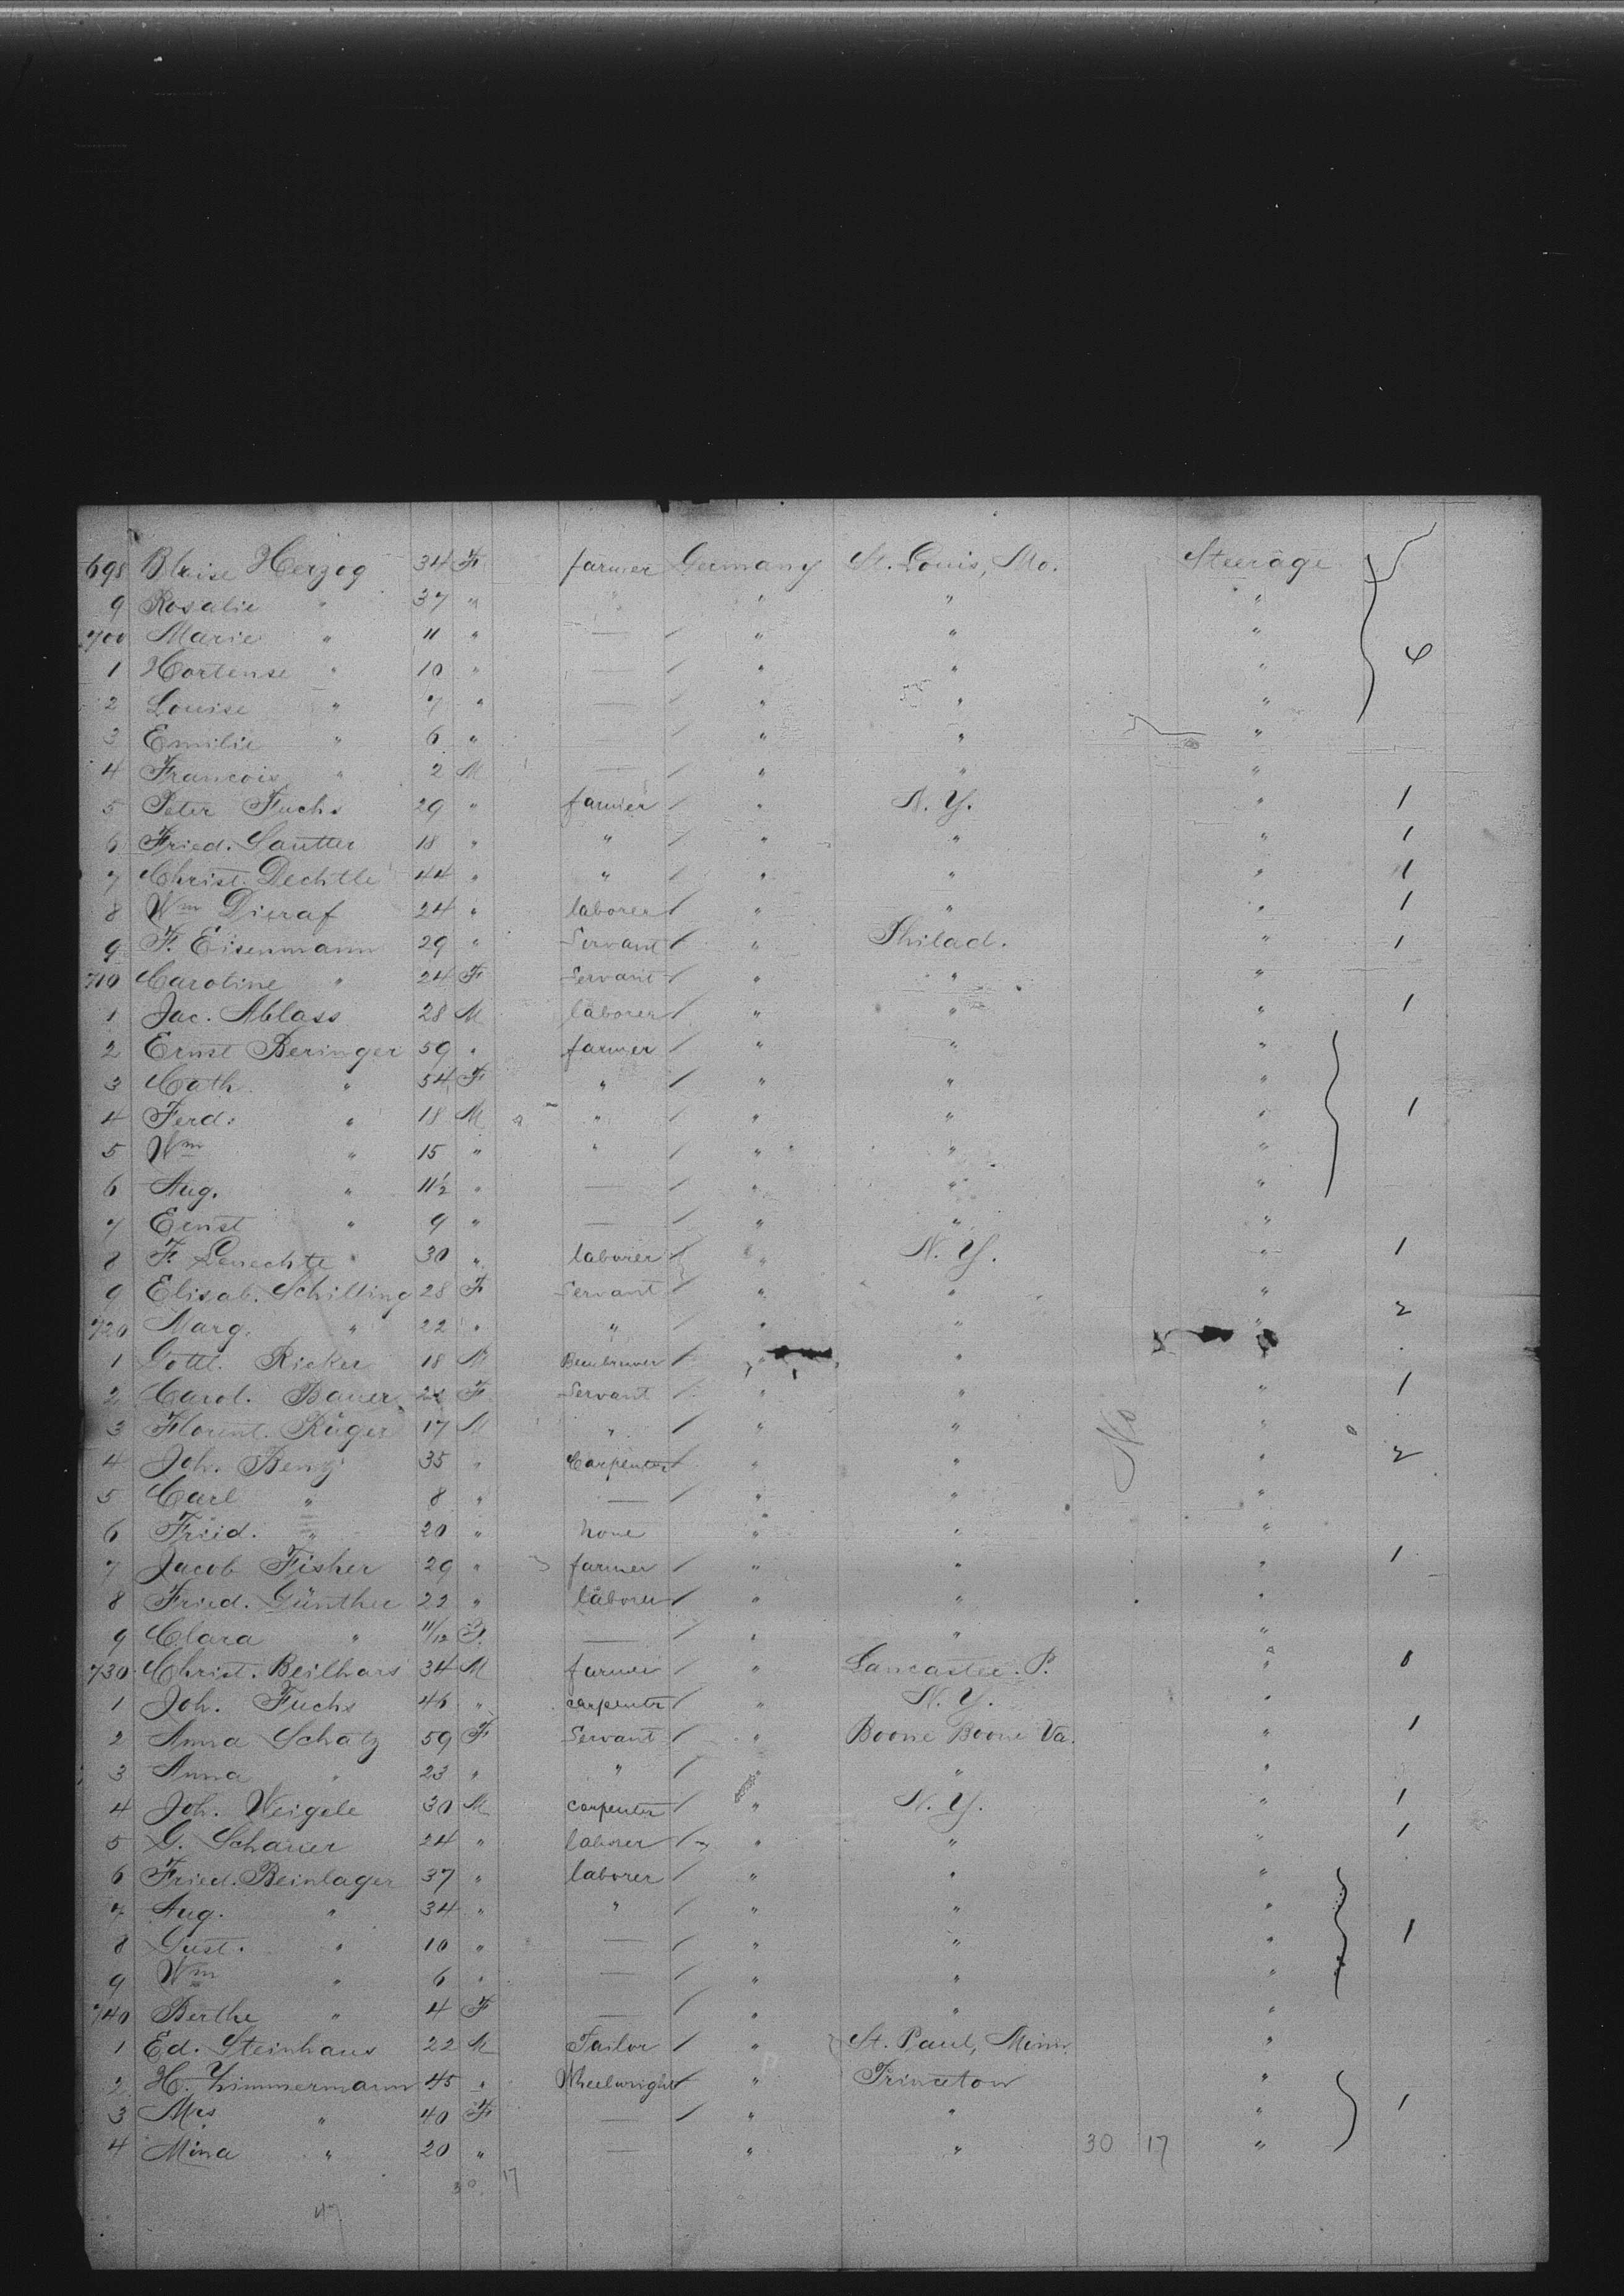 698 Blaise Herzog 34 F farmer Germany St. Louis, Mo. Steerage
9 Rosalie " 37 " " " " "
700 Marie " 11 " — / " " " 4
1 Hortense " 10 " — / " " "
2 Louise " 7 " — / " " "
3 Emilie " 6 " — / " " "
4 Francois " 2 M — / " " "
5 Peter Fuchs 29 " farmer / " N. Y. " 1
6 Fried. Sautter 18 " " / " " " 1
7 Christ. Dechtle 44 " " / " " " 1
8 Wm Dieraf 24 " laborer / " " " 1
9 F. Eisenmann 29 " Servant / " Philad. " 1
710 Caroline " 24 F Servant / " " "
1 Jac. Ablass 28 M laborer / " " " 1
2 Ernst Beringer 59 " farmer / " " "
3 Cath. " 54 F " / " " "
4 Ferd. " 18 M " / " " " 1
5 Wm " 15 " " / " " "
6 Aug. " 11½ " — / " " "
7 Ernst " 9 " — / " " "
8 F. 30 " laborer / " N. Y. " 1
9 Elisab. Schilling 28 F Servant / " " "
720 Marg. " 22 " " / " " " 2
1 Gottl. Ricker 18 M / " " "
2 Carol. Bauer F Servant / " " " 1
3 Florent. Rüger 17 M " / " " "
4 Joh. Benz 35 " Carpenter / " " No " 2
5 Carl " 8 " — / " " "
6 Fried. " 20 " none " " "
7 Jacob Fisher 29 " farmer / " " " 1
8 Fried. Günther 22 " laborer / " " "
9 Clara " 11/12 F — / " " "
730 Christ. Beilhars 34 M farmer / " Lancaster. P. " 1
1 Joh. Fuchs 46 " carpenter / " N. Y. "
2 Anna Schatz 59 F Servant / " Boone Boone Va. " 1
3 Anna " 23 " " / " " "
4 Joh. Weigele 30 M carpenter / " N. Y. " 1
5 G. Schauer 24 " laborer / " " " 1
6 Fried. Beinlager 37 " laborer / " " "
7 Aug. " 34 " " / " " "
8 Gust. " 10 " — / " " " 1
9 Wm " 6 " — / " " "
740 Berthe " 4 F — / " " "
1 Ed. Steinhaus 22 M Tailor / " St. Paul, Minn. "
2 H. Zimmermann 45 " Wheelwright / " Princeton "
3 Mrs " 40 F — / " " " 1
4 Mina " 20 " — " " 30 17 "
30 17
47